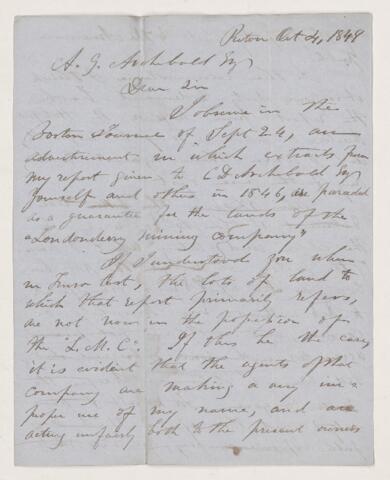 Pictou Oct 4, 1849
A. G. Archibald Esq
Dear Sir
I observe in the
Boston Journal of Sept 24, an
advertisement in which extracts from
my report given to C D Archibald Esq
Yourself and others in 1846, are paraded
as a guarantee for the lands of the
"Londonderry Mining Company"
If I understood you when
in Truro last, the lots of land to
which that report primarily refers,
are not now in the possession of
the "L. M. C." If this be the case
it is evident that the agents of that
company are making a very im=
proper use of my name, and are
acting unfairly both to the present owners